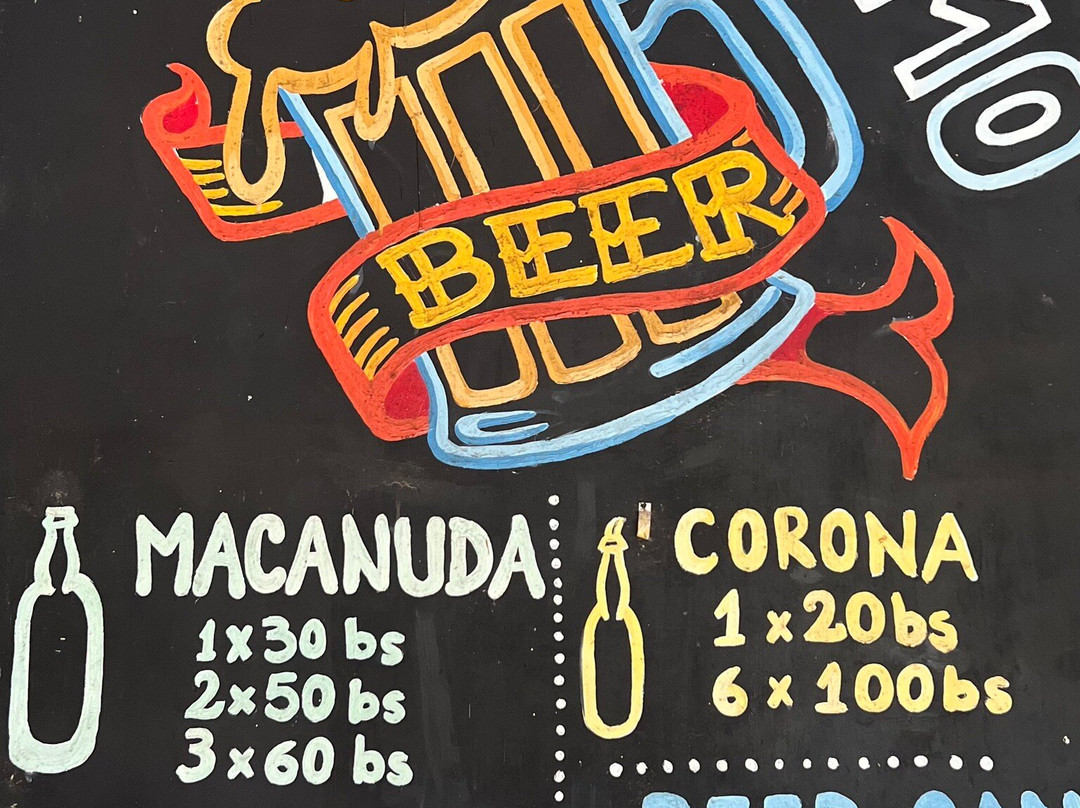 MO
BEER
MACANUDA
1x30 bs
2x50 bs
3x60 bs
CORONA
1x20bs
6x100bs
BEER